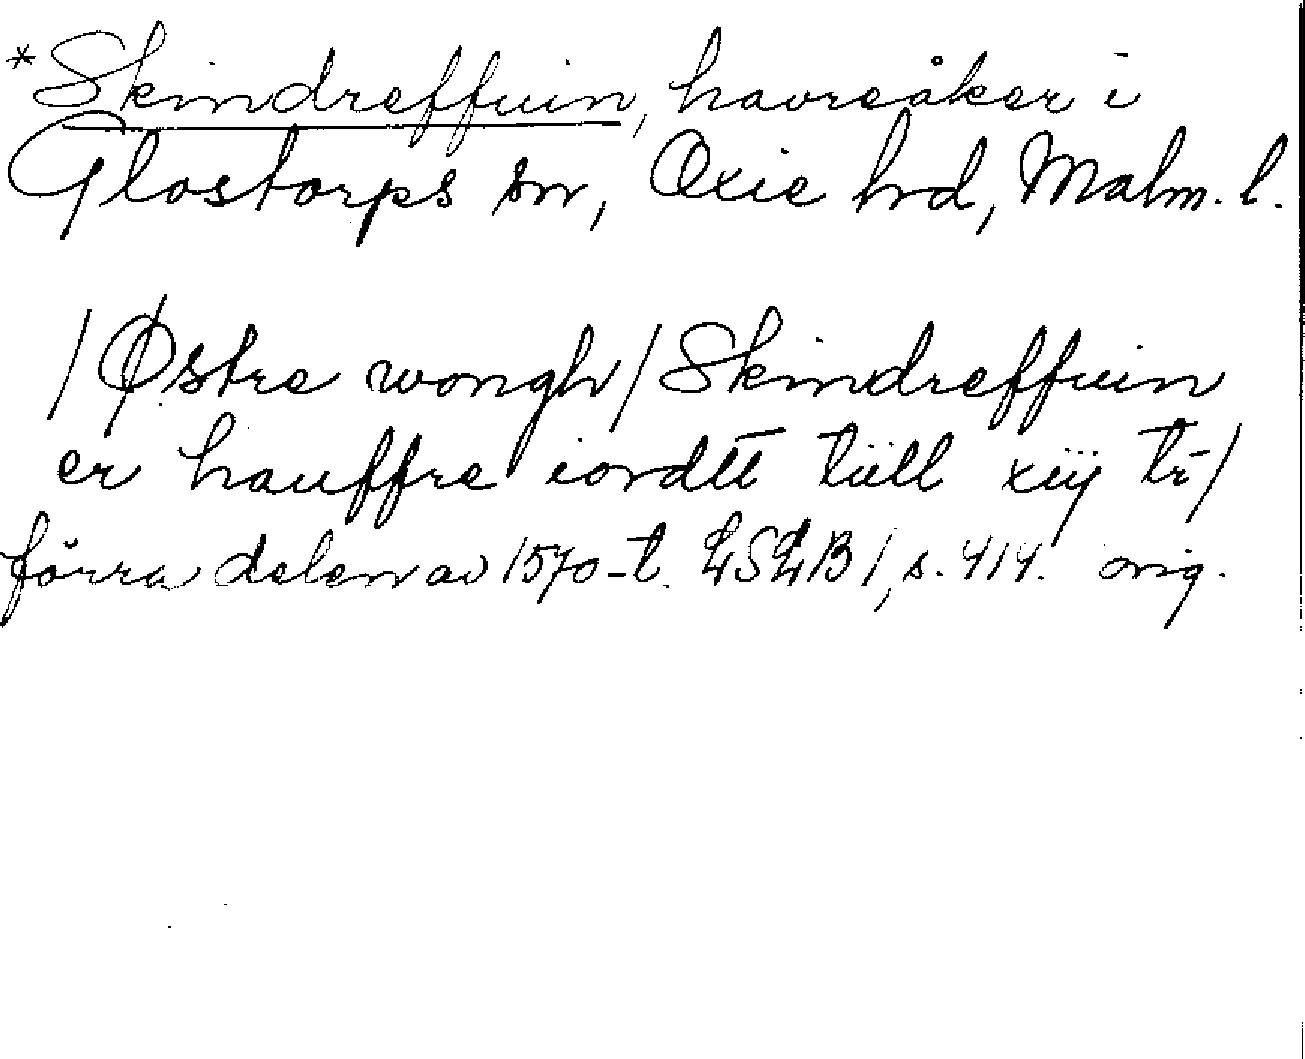 *Skindreffuin, havreåker i
Glostorps sn, Oxie hd, Malm. l.
/Østre wongh/ Skindreffuin
er hauffre iordtt tiill xiij tr/
förra delen av 1570-t. LSLB 1, s. 414. orig.